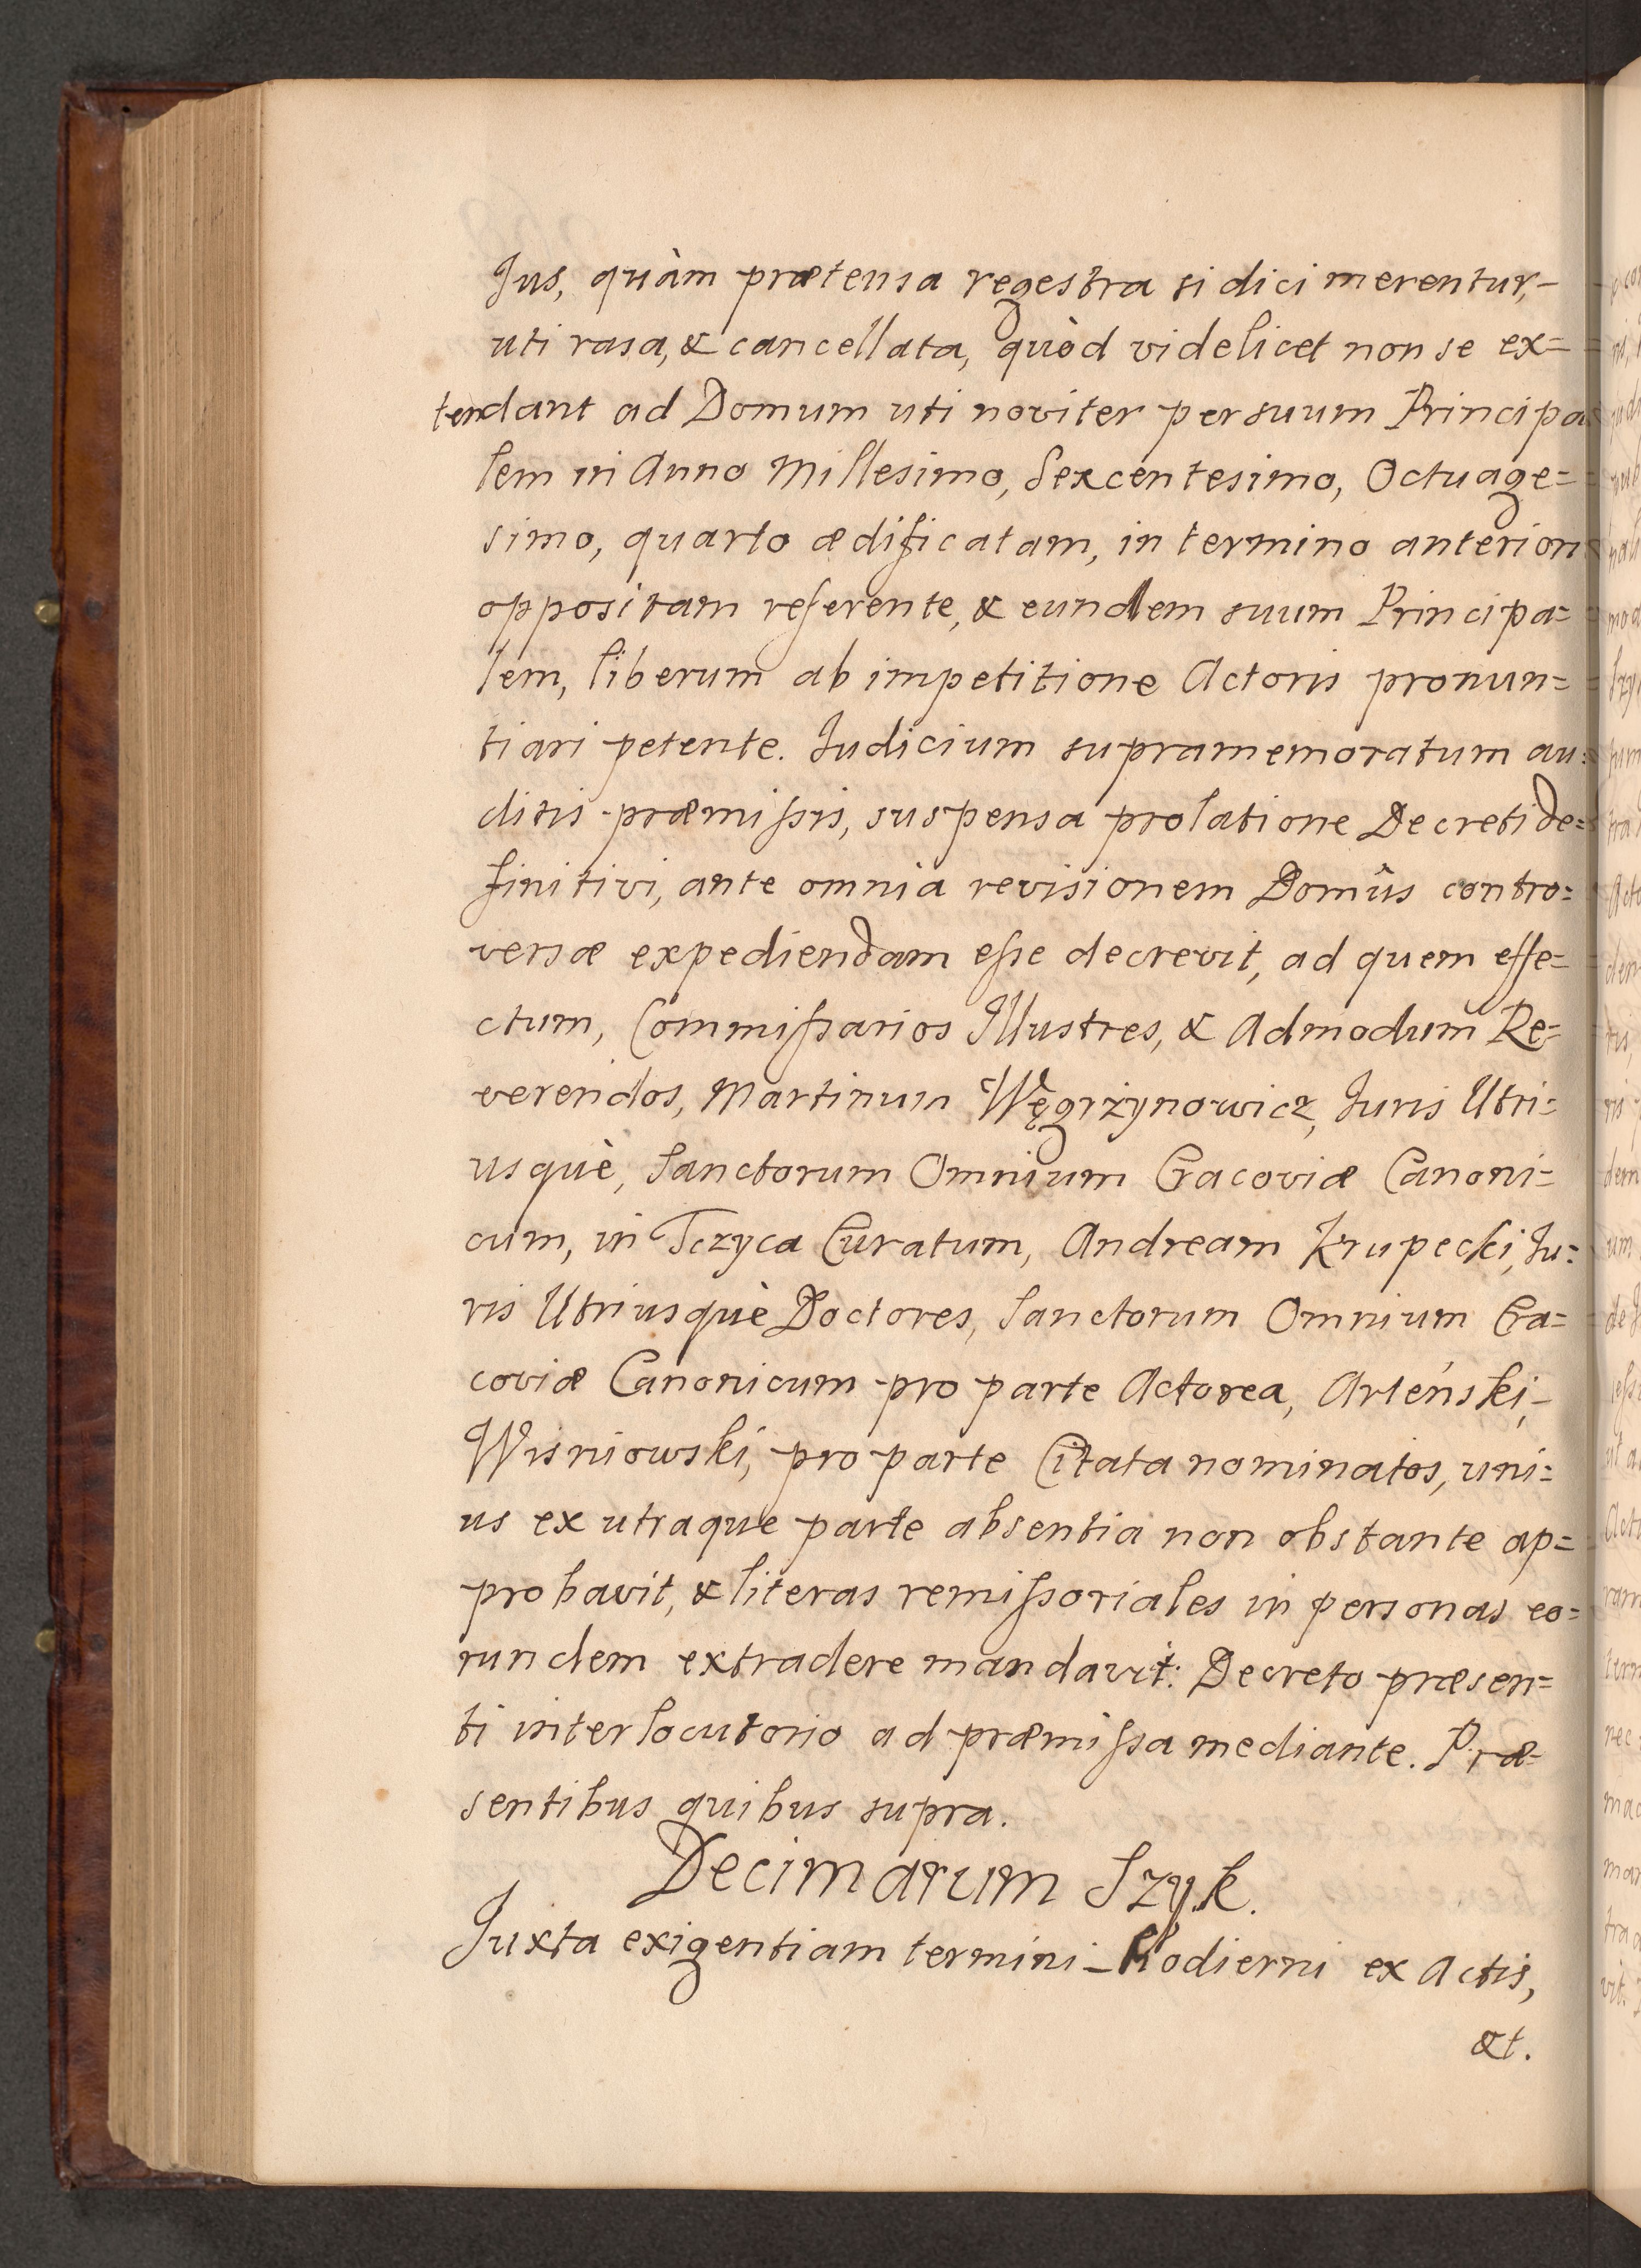 Jus, quàm prætensa regestra si dici merentur,-
uti rasa, & cancellata, quòd videlicet non se ex=
tendant ad Domum uti noviter per suum Principa
lem in Anno Millesimo, Sexcentesimo, Octuage=
simo, quarto ædificatam, in termino anteriori
oppositam referente, & eundem suum Principa=
lem, liberum ab impetitione Actoris pronun=
tiari petente. Judicium supramemoratum au=
ditis præmissis, suspensa prolatione Decreti de=
finitivi, ante omnia revisionem Domûs contro=
versæ expediendam esse decrevit, ad quem effe=
ctum, Commissarios Illustres, & Admodum Re=
verendos, Martinum Węgrżynowicz, Juris Utri=
usquè, Sanctorum Omnium Cracoviæ Canoni=
cum, in Tczyca Curatum, Andream Krupecki, Ju=
ris Utriusquè Doctores, Sanctorum Omnium Cra=
coviæ Canonicum pro parte Actorea, Arteński,-
Wisniowski, pro parte Citata nominatos, uni=
us ex utraque parte absentia non obstante ap=
probavit, & literas remissoriales in personas eo=
rundem extradere mandavit: Decreto præsen=
ti interlocutorio ad præmissa mediante. Præ=
sentibus quibus supra.
Decimarum Szyk.
Juxta exigentiam termini - hodierni ex Actis,
&t.